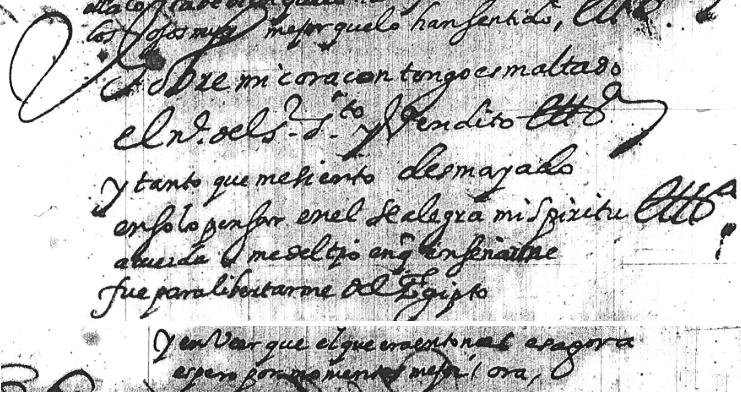 los ojos mejor que lo han sentido,
Sobre mi coraçon tengo esmaltado
el n.e del s.r s.to y Vendito
y tanto que me siento desmayado
en solo pensar en el se alegra mi spiritu
acuerda me del tpo en q enseñarme
fue para libertarme del Egipto
y en Veer que el que era entonces es agora
espero por momentos mejor ora,